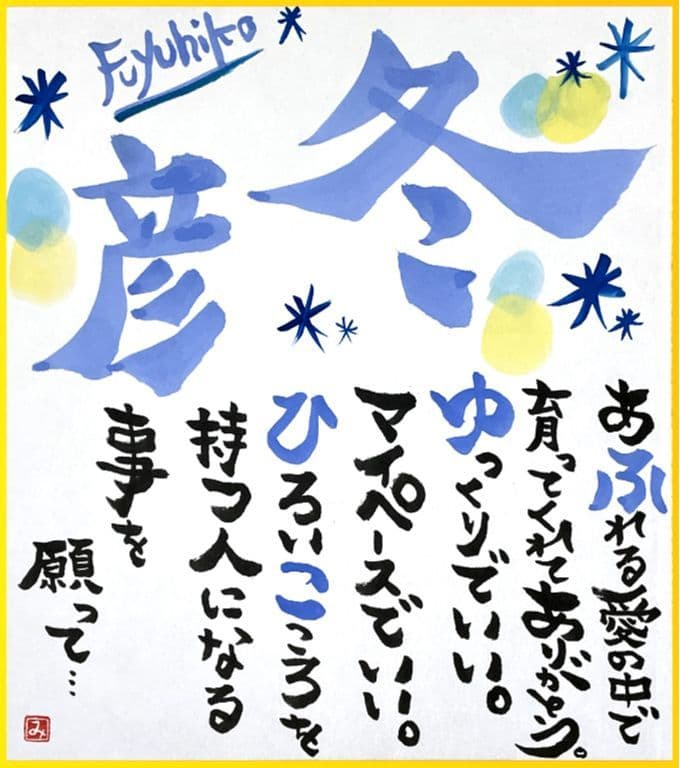 Fuyuhiko
冬彦
あふれる愛の中で
育ってくれてありがとう。
ゆっくりでいい。
マイペースでいい。
ひろいこころを
持つ人になる
事を
願って…
み